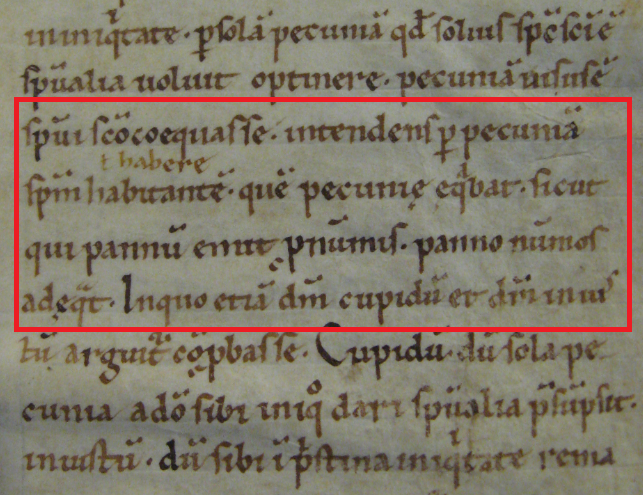 ininiq̇tate · p̱solā pecuniā qđ solius sp̄c scīē
sp̄ualia uoluit optinere · pecuniā uisusē
sp̄ui scōcoequasse · intendens p̱ pecuniā
ł habere
sp̄m habitantē · quē pecunię eq̄bat · sicut
qui pannū emit p̱nūmis · panno nūmos
adęq̄t · Inquo etiā dm̄ cupidū et dn̄i inius
tū arguit͛ cōp̱basse · Cupidū · dū sola pe
cunia adō sibi iniq̊ dari sp̄ualia p̄sūpsit ·
iniustū · dū sibi ī p̄stina iniq̇tate rema